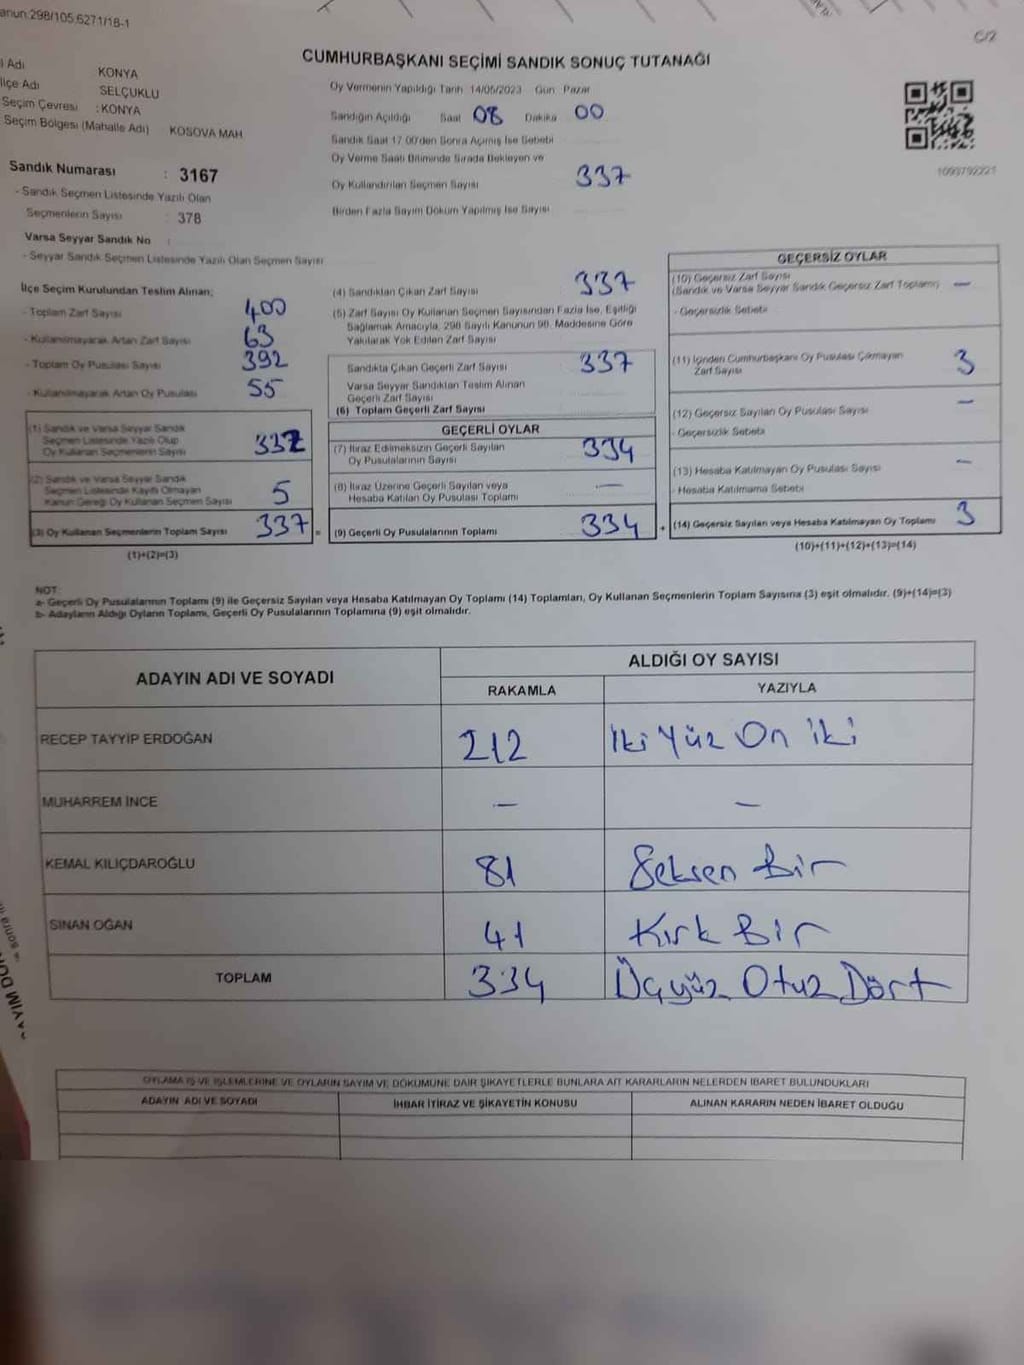 anun:298/105.6271/18-1
C/2
CUMHURBAŞKANI SEÇİMİ SANDIK SONUÇ TUTANAĞI
l Adı KONYA
lçe Adı SELÇUKLU
Seçim Çevresi : KONYA
Seçim Bölgesi (Mahalle Adı) KOSOVA MAH
Oy Vermenin Yapıldığı Tarih 14/05/2023 Gün Pazar
Sandığın Açıldığı Saat 08 Dakika 00
Sandık Saat 17.00'den Sonra Açılmış İse Sebebi
Oy Verme Saati Bitiminde Sırada Bekleyen ve
Oy Kullandırılan Seçmen Sayısı 337
Birden Fazla Sayım Döküm Yapılmış İse Sayısı
1093792221
Sandık Numarası : 3167
- Sandık Seçmen Listesinde Yazılı Olan
Seçmenlerin Sayısı : 378
Varsa Seyyar Sandık No :
- Seyyar Sandık Seçmen Listesinde Yazılı Olan Seçmen Sayısı
İlçe Seçim Kurulundan Teslim Alınan;
- Toplam Zarf Sayısı 400
- Kullanılmayarak Artan Zarf Sayısı 63
- Toplam Oy Pusulası Sayısı 392
- Kullanılmayarak Artan Oy Pusulası 55
(1) Sandık ve Varsa Seyyar Sandık
Seçmen Listesinde Yazılı Olup
Oy Kullanan Seçmenlerin Sayısı 332
(2) Sandık ve Varsa Seyyar Sandık
Seçmen Listesinde Kayıtlı Olmayan
Kanun Gereği Oy Kullanan Seçmen Sayısı 5
(3) Oy Kullanan Seçmenlerin Toplam Sayısı 337 =
(1)+(2)=(3)
(4) Sandıktan Çıkan Zarf Sayısı 337
(5) Zarf Sayısı Oy Kullanan Seçmen Sayısından Fazla İse, Eşitliği
Sağlamak Amacıyla, 298 Sayılı Kanunun 98. Maddesine Göre
Yakılarak Yok Edilen Zarf Sayısı
Sandıkta Çıkan Geçerli Zarf Sayısı 337
Varsa Seyyar Sandıktan Teslim Alınan
Geçerli Zarf Sayısı
(6) Toplam Geçerli Zarf Sayısı
GEÇERLİ OYLAR
(7) İtiraz Edilmeksizin Geçerli Sayılan
Oy Pusulalarının Sayısı 334
(8) İtiraz Üzerine Geçerli Sayılan veya
Hesaba Katılan Oy Pusulası Toplamı —
(9) Geçerli Oy Pusulalarının Toplamı 334 +
GEÇERSİZ OYLAR
(10) Geçersiz Zarf Sayısı
(Sandık ve Varsa Seyyar Sandık Geçersiz Zarf Toplamı) —
- Geçersizlik Sebebi
(11) İçinden Cumhurbaşkanı Oy Pusulası Çıkmayan
Zarf Sayısı 3
(12) Geçersiz Sayılan Oy Pusulası Sayısı —
- Geçersizlik Sebebi
(13) Hesaba Katılmayan Oy Pusulası Sayısı —
- Hesaba Katılmama Sebebi
(14) Geçersiz Sayılan veya Hesaba Katılmayan Oy Toplamı 3
(10)+(11)+(12)+(13)=(14)
NOT:
a- Geçerli Oy Pusulalarının Toplamı (9) ile Geçersiz Sayılan veya Hesaba Katılmayan Oy Toplamı (14) Toplamları, Oy Kullanan Seçmenlerin Toplam Sayısına (3) eşit olmalıdır. (9)+(14)=(3)
b- Adayların Aldığı Oyların Toplamı, Geçerli Oy Pusulalarının Toplamına (9) eşit olmalıdır.
ADAYIN ADI VE SOYADI
ALDIĞI OY SAYISI
RAKAMLA YAZIYLA
RECEP TAYYİP ERDOĞAN 212 İki Yüz On iki
MUHARREM İNCE — —
KEMAL KILIÇDAROĞLU 81 Seksen Bir
SİNAN OĞAN 41 Kırk Bir
TOPLAM 334 Üçyüz Otuz Dört
OYLAMA İŞ VE İŞLEMLERİNE VE OYLARIN SAYIM VE DÖKÜMÜNE DAİR ŞİKAYETLERLE BUNLARA AİT KARARLARIN NELERDEN İBARET BULUNDUKLARI
ADAYIN ADI VE SOYADI İHBAR İTİRAZ VE ŞİKAYETİN KONUSU ALINAN KARARIN NEDEN İBARET OLDUĞU